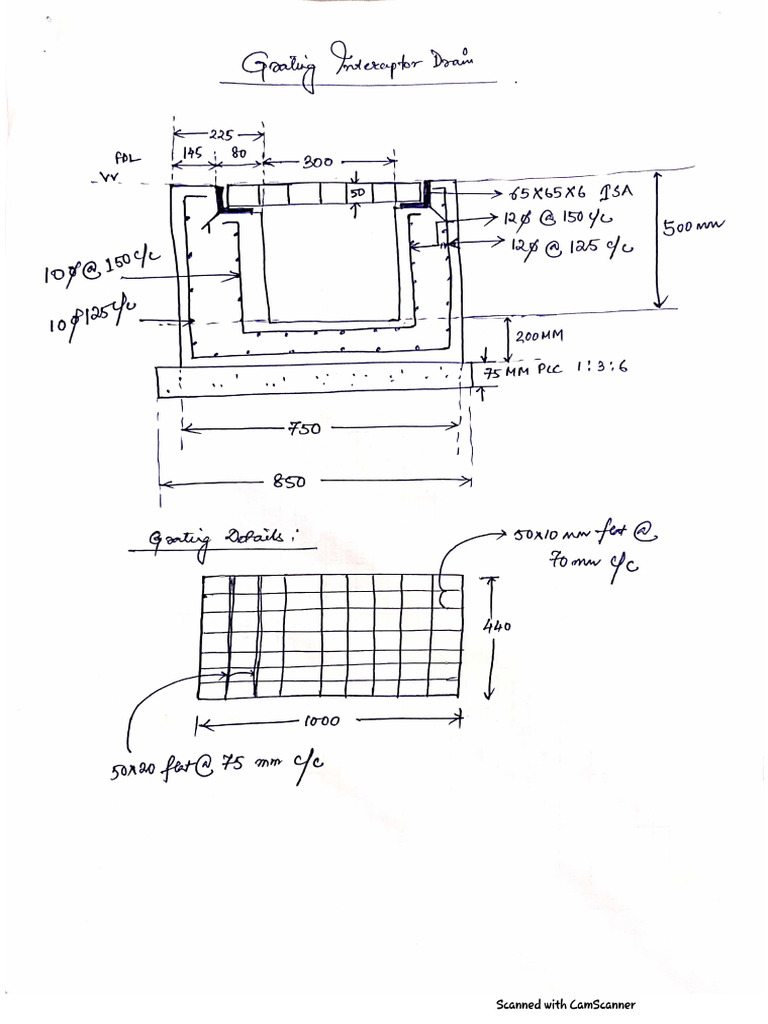 Grating Interceptor Drain
225
145 80
300
FDL
50
65X65X6 ISA
12ϕ @ 150 c/c
12ϕ @ 125 c/c
500 mm
10ϕ @ 150 c/c
10ϕ 125 c/c
200MM
75 MM PCC 1:3:6
750
850
Grating Details:
50x10 mm flat @
70 mm c/c
440
1000
50x20 flat @ 75 mm c/c
Scanned with CamScanner